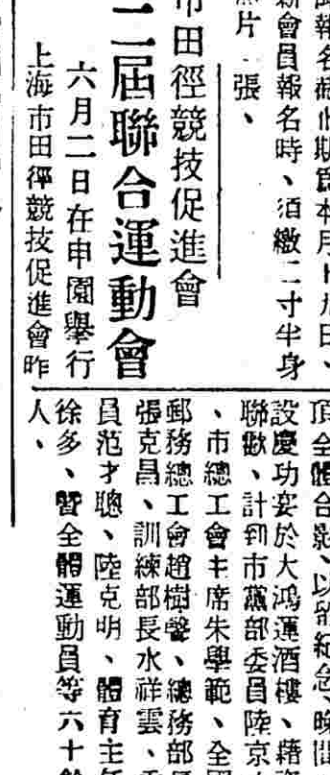 報名
期
本月十九日、
新會員報名時、須繳二寸半身
照片一張、
市田徑競技促進會
二屆聯合運動會
六月二日在申園舉行
上海市田徑競技促進會昨
頂全體合影、以留紀念、晚間
設慶功宴於大鴻運酒樓、藉資
聯歡、計到市黨部委員陸京
、市總工會主席朱學範、全國
郵務總工會趙樹聲、總務部長
張克昌、訓練部長水祥雲、
員范才聰、陸克明、體育主任
徐多、暨全體運動員等六十餘
人、